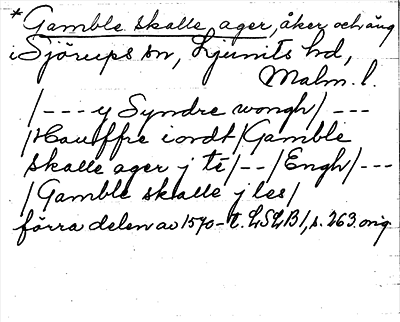 *Gamble skalle, ager, åker och äng
i Sjörups sn, Ljunits hd,
Malm. l.
/--- y Syndre wongh/ ---
/Hauffre iordt/Gamble
skalle ager j te/--/Engh/---
/Gamble skalle j les/
förra delen av 1570-t. LSLB1, s. 263. orig